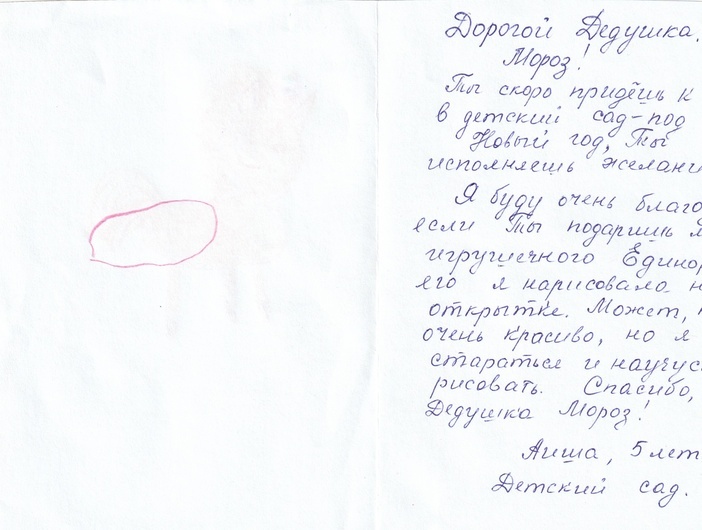 Дорогой Дедушка
Мороз!
Ты скоро придёшь к
в детский сад-под
Новый год, Ты
исполняешь желани
Я буду очень благо
если Ты подаришь
игрушечного Единор
его я нарисовала н
открытке. Может,
очень красиво, но я
стараться и научус
рисовать. Спасибо,
Дедушка Мороз!
Аиша, 5 лет
Детский сад.